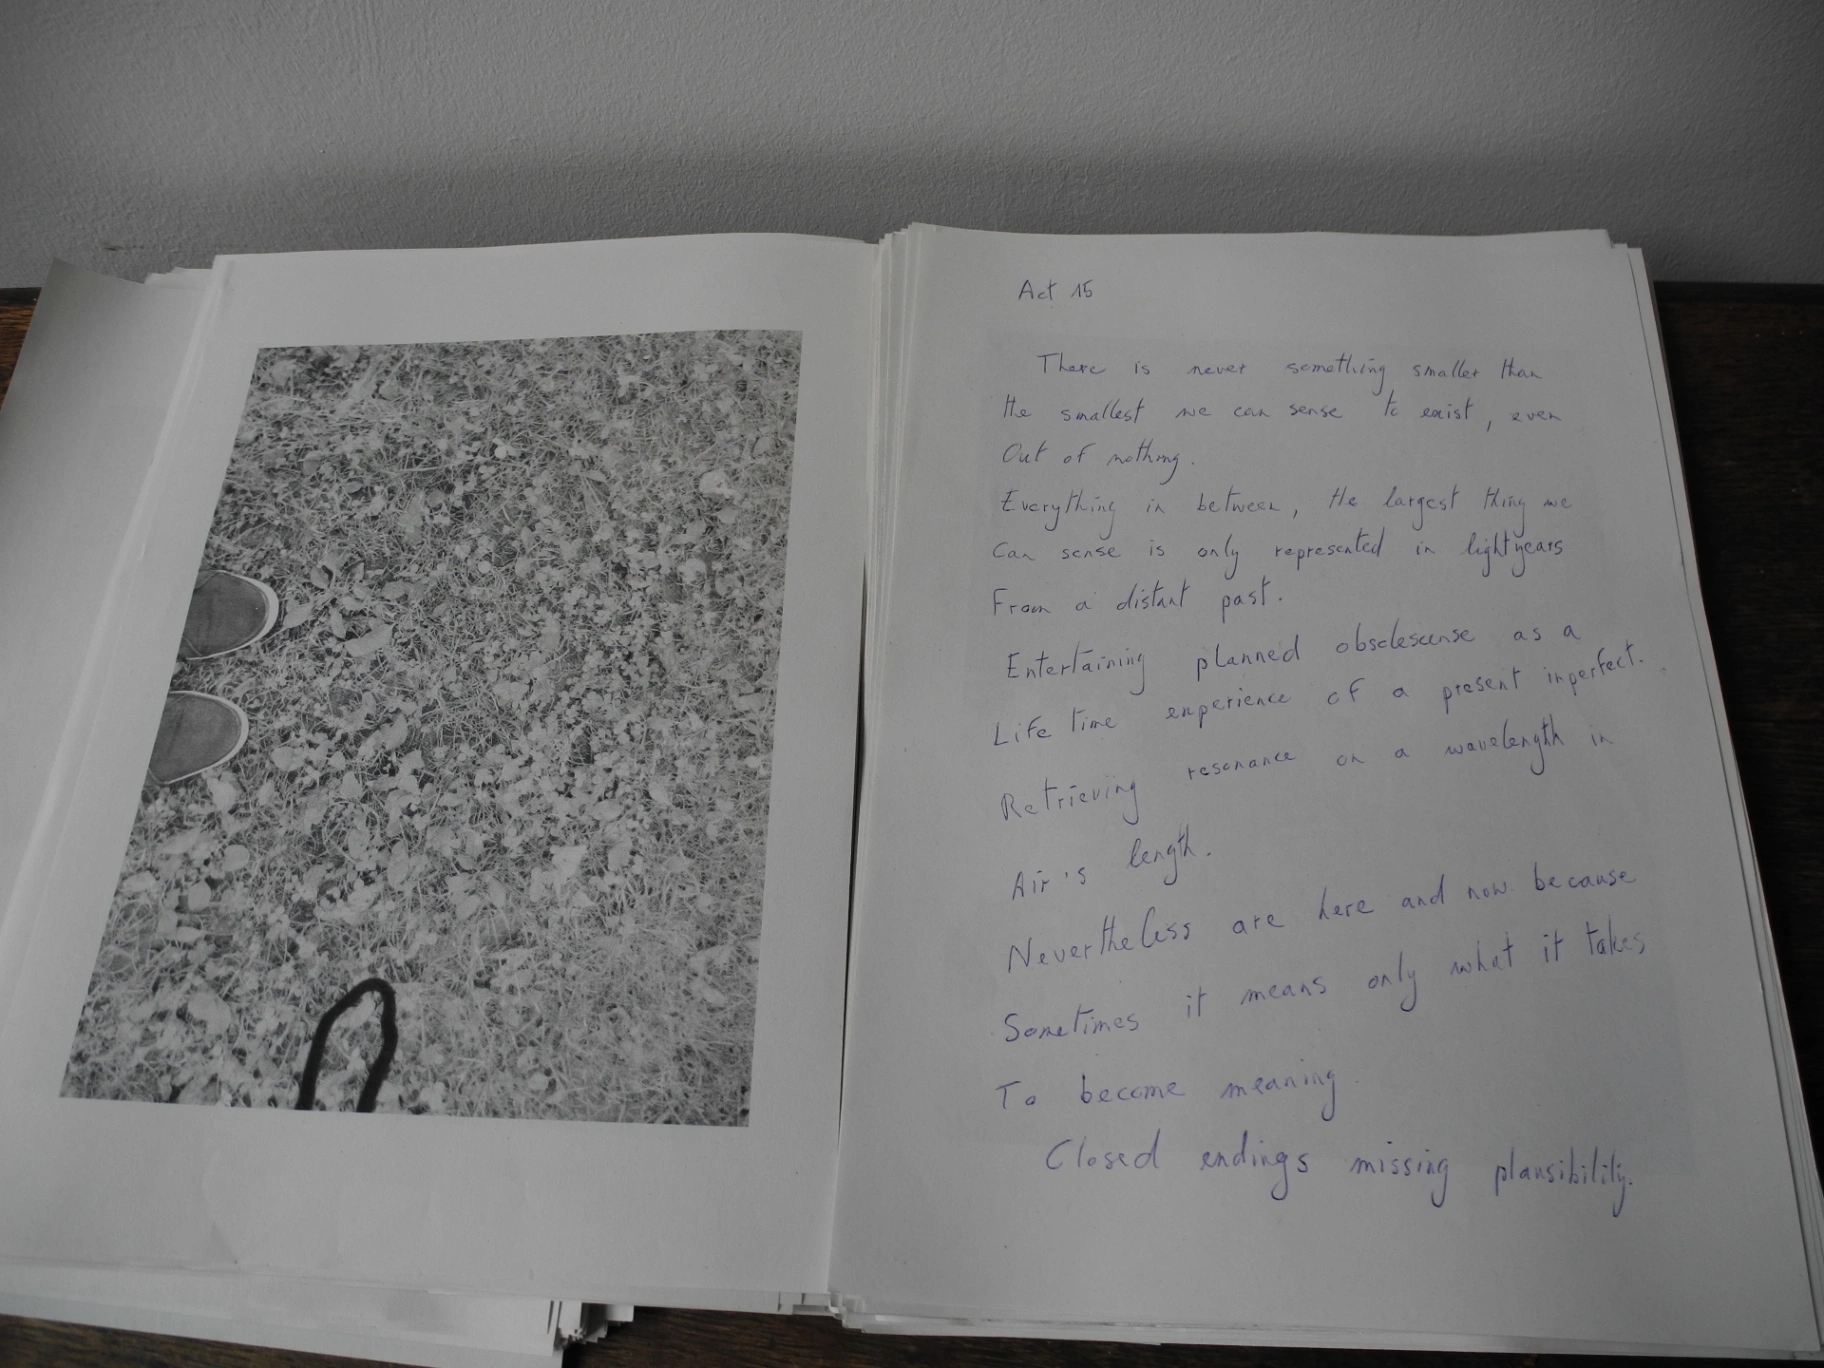 Act 15
There is never something smaller than
the smallest we can sense to exist, even
Out of nothing.
Everything in between, the largest thing we
Can sense is only represented in lightyears
From a distant past.
Entertaining planned obsolescense as a
Life time experience of a present inperfect.
Retrieving resonance on a wavelength in
Air's length.
Nevertheless are here and now because
Sometimes it means only what it takes
To become meaning.
Closed endings missing plausibility.